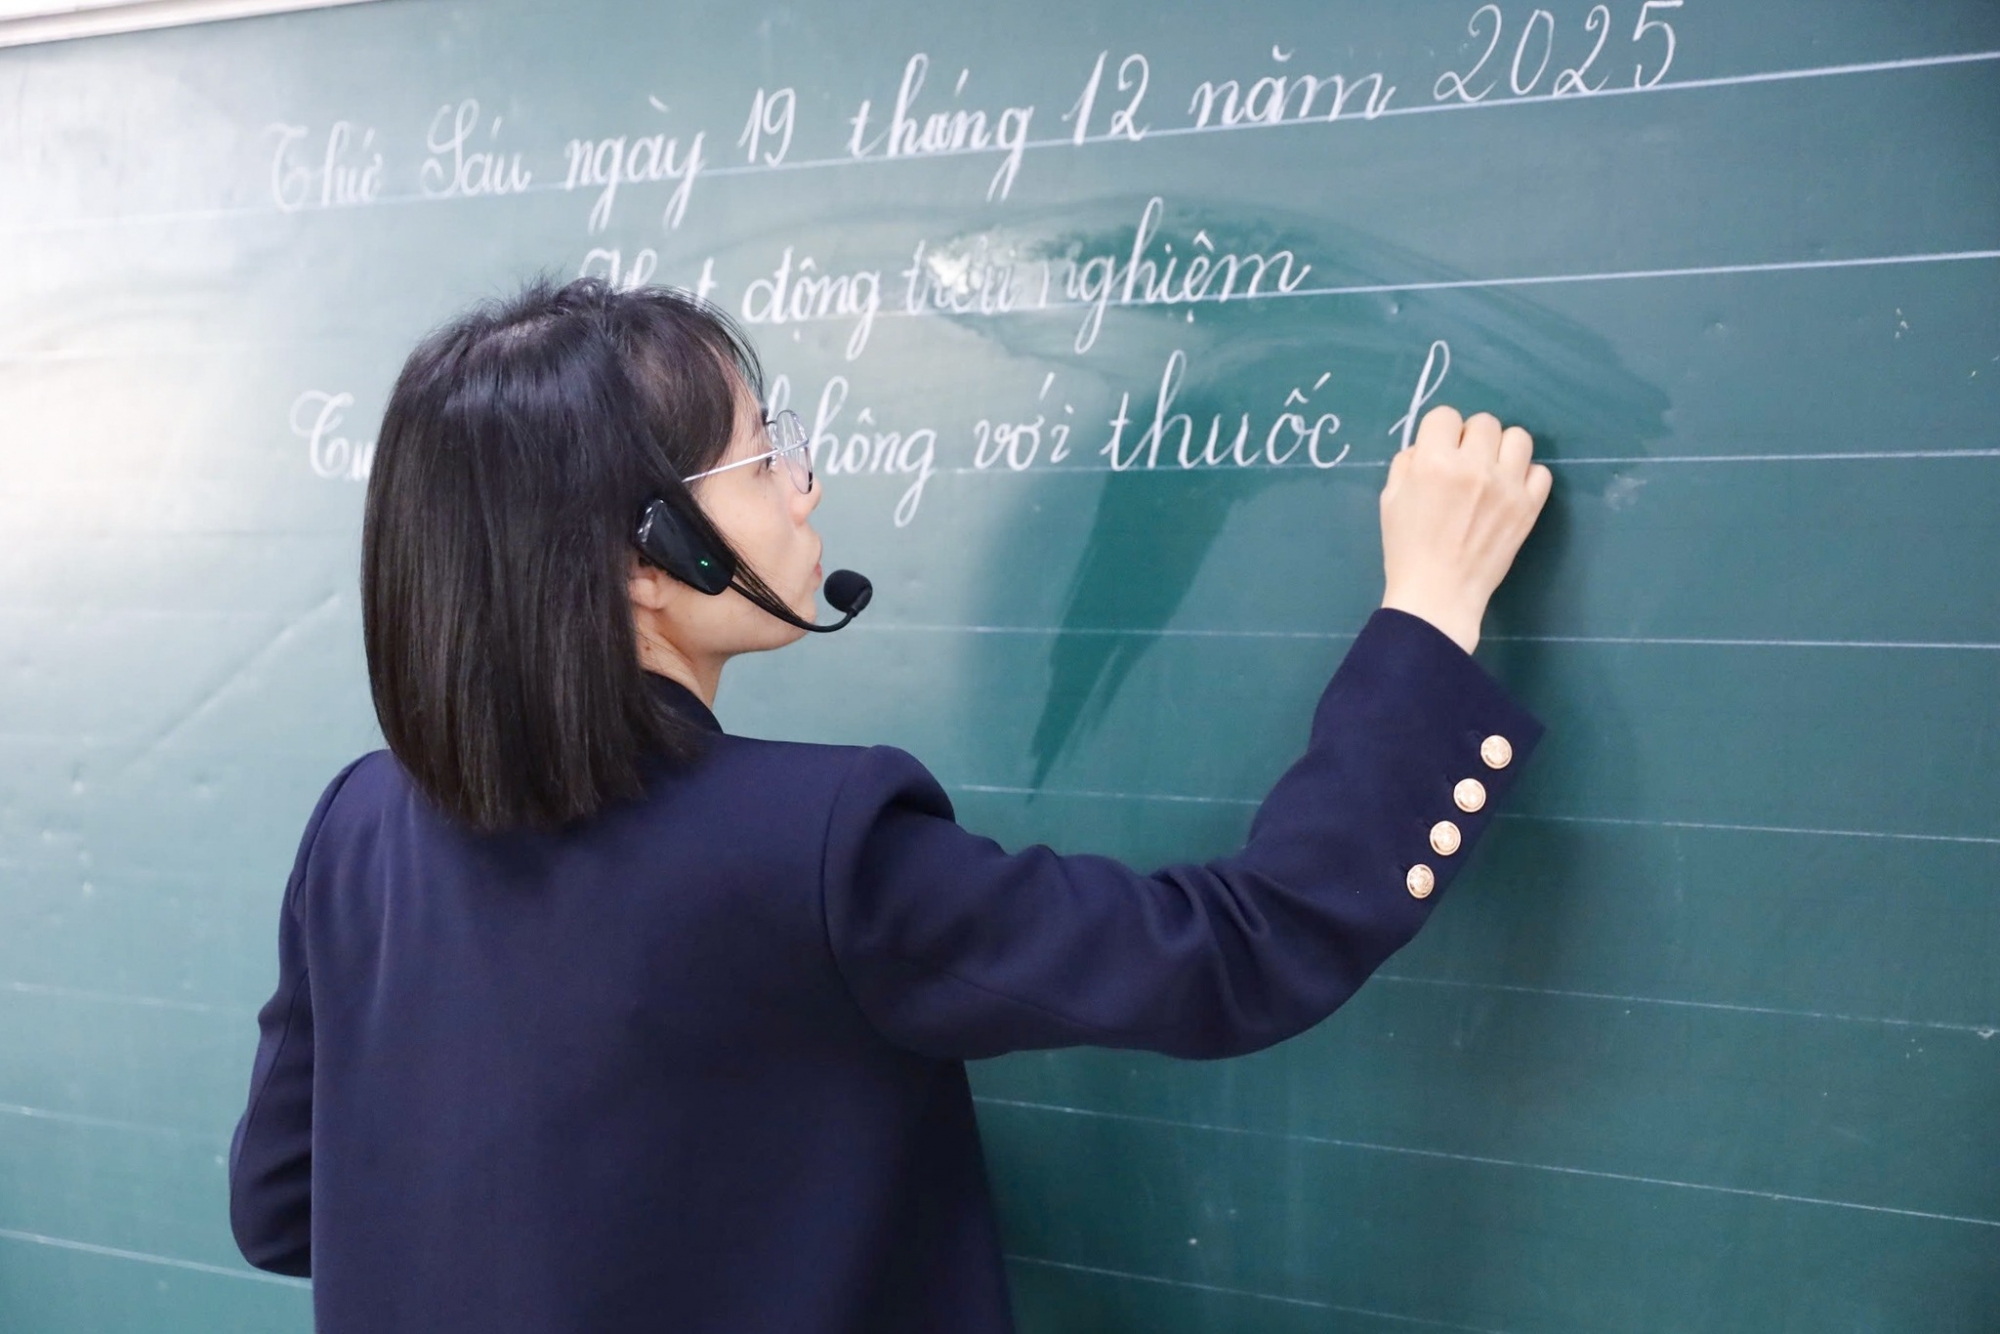 Thứ Sáu ngày 19 tháng 12 năm 2025
động trải nghiệm
không với thuốc